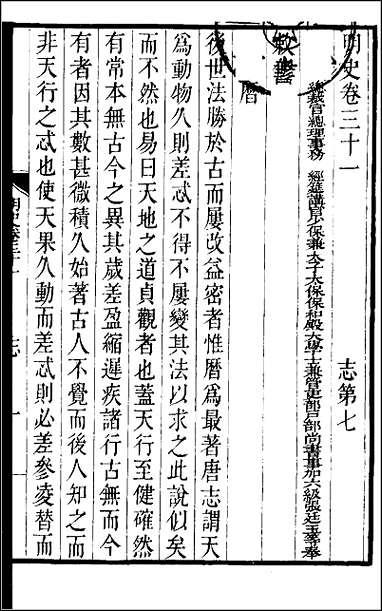 明史卷三十一 志第七
總裁官總理事務 經筵講官少保兼太子太保保和殿大學士兼管吏部戶部尚書事加六級張廷玉等奉
敕修
曆一
後世法勝於古而屢改益密者惟曆爲最著唐志謂天
爲動物久則差忒不得不屢變其法以求之此說似矣
而不然也易曰天地之道貞觀者也蓋天行至健確然
有常本無古今之異其歲差盈縮遲疾諸行古無而今
有者因其數甚微積久始著古人不覺而後人知之而
非天行之忒也使天果久動而差忒則必差參凌替而